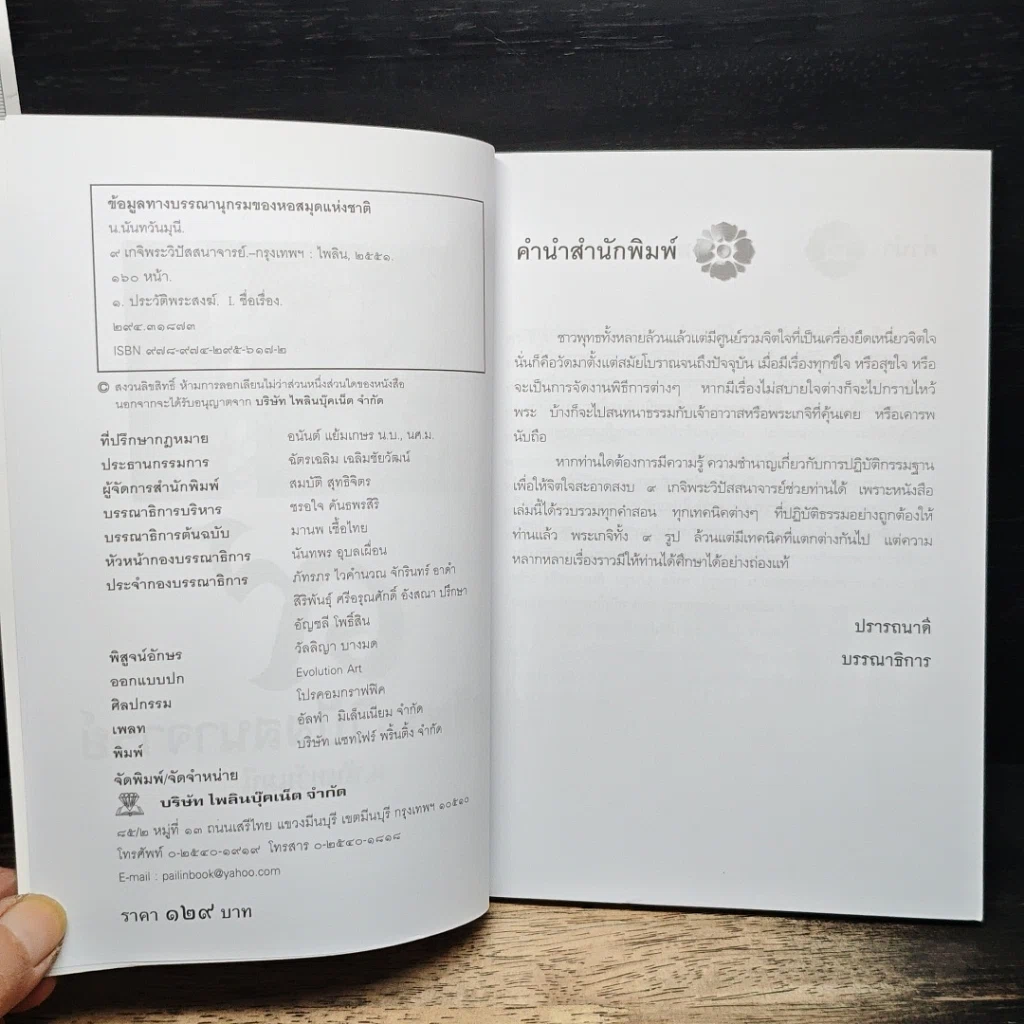 ข้อมูลทางบรรณานุกรมของหอสมุดแห่งชาติ
น.นันทวันมุนี.
๙ เกจิพระวิปัสสนาจารย์.–กรุงเทพฯ : ไพลิน, ๒๕๕๑.
๑๖๐ หน้า.
๑. ประวัติพระสงฆ์. I. ชื่อเรื่อง.
๒๙๔.๓๑๘๗๓
ISBN ๙๗๘-๙๗๔-๒๙๕-๖๑๗-๒
© สงวนลิขสิทธิ์ ห้ามการลอกเลียนไม่ว่าส่วนหนึ่งส่วนใดของหนังสือ
นอกจากจะได้รับอนุญาตจาก บริษัท ไพลินบุ๊คเน็ต จำกัด
ที่ปรึกษากฎหมาย อนันต์ แย้มเกษร น.บ., นศ.ม.
ประธานกรรมการ ฉัตรเฉลิม เฉลิมชัยวัฒน์
ผู้จัดการสำนักพิมพ์ สมบัติ สุทธิจิตร
บรรณาธิการบริหาร ชรอใจ คันธพรสิริ
บรรณาธิการต้นฉบับ มานพ เชื้อไทย
หัวหน้ากองบรรณาธิการ นันทพร อุบลเผื่อน
ประจำกองบรรณาธิการ ภัทรภร ไวคำนวณ จักรินทร์ อาดำ
สิริพันธุ์ ศรีอรุณศักดิ์ อังสณา ปรึกษา
อัญชลี โพธิ์สิน
พิสูจน์อักษร วัลลิญา บางมด
ออกแบบปก Evolution Art
ศิลปกรรม โปรคอมกราฟฟิค
เพลท อัลฟ่า มิเล็นเนียม จำกัด
พิมพ์ บริษัท แซทโฟร์ พริ้นติ้ง จำกัด
จัดพิมพ์/จัดจำหน่าย
บริษัท ไพลินบุ๊คเน็ต จำกัด
๘๕/๒ หมู่ที่ ๑๓ ถนนเสรีไทย แขวงมีนบุรี เขตมีนบุรี กรุงเทพฯ ๑๐๕๑๐
โทรศัพท์ ๐-๒๕๔๐-๑๙๑๙ โทรสาร ๐-๒๕๔๐-๑๘๑๘
E-mail : pailinbook@yahoo.com
ราคา ๑๒๙ บาท
คำนำสำนักพิมพ์
ชาวพุทธทั้งหลายล้วนแล้วแต่มีศูนย์รวมจิตใจที่เป็นเครื่องยึดเหนี่ยวจิตใจ
นั่นก็คือวัดมาตั้งแต่สมัยโบราณจนถึงปัจจุบัน เมื่อมีเรื่องทุกข์ใจ หรือสุขใจ หรือ
จะเป็นการจัดงานพิธีการต่างๆ หากมีเรื่องไม่สบายใจต่างก็จะไปกราบไหว้
พระ บ้างก็จะไปสนทนาธรรมกับเจ้าอาวาสหรือพระเกจิที่คุ้นเคย หรือเคารพ
นับถือ
หากท่านใดต้องการมีความรู้ ความชำนาญเกี่ยวกับการปฏิบัติกรรมฐาน
เพื่อให้จิตใจสะอาดสงบ ๙ เกจิพระวิปัสสนาจารย์ช่วยท่านได้ เพราะหนังสือ
เล่มนี้ได้รวบรวมทุกคำสอน ทุกเทคนิคต่างๆ ที่ปฏิบัติธรรมอย่างถูกต้องให้
ท่านแล้ว พระเกจิทั้ง ๙ รูป ล้วนแต่มีเทคนิคที่แตกต่างกันไป แต่ความ
หลากหลายเรื่องราวมีให้ท่านได้ศึกษาได้อย่างถ่องแท้
ปรารถนาดี
บรรณาธิการ